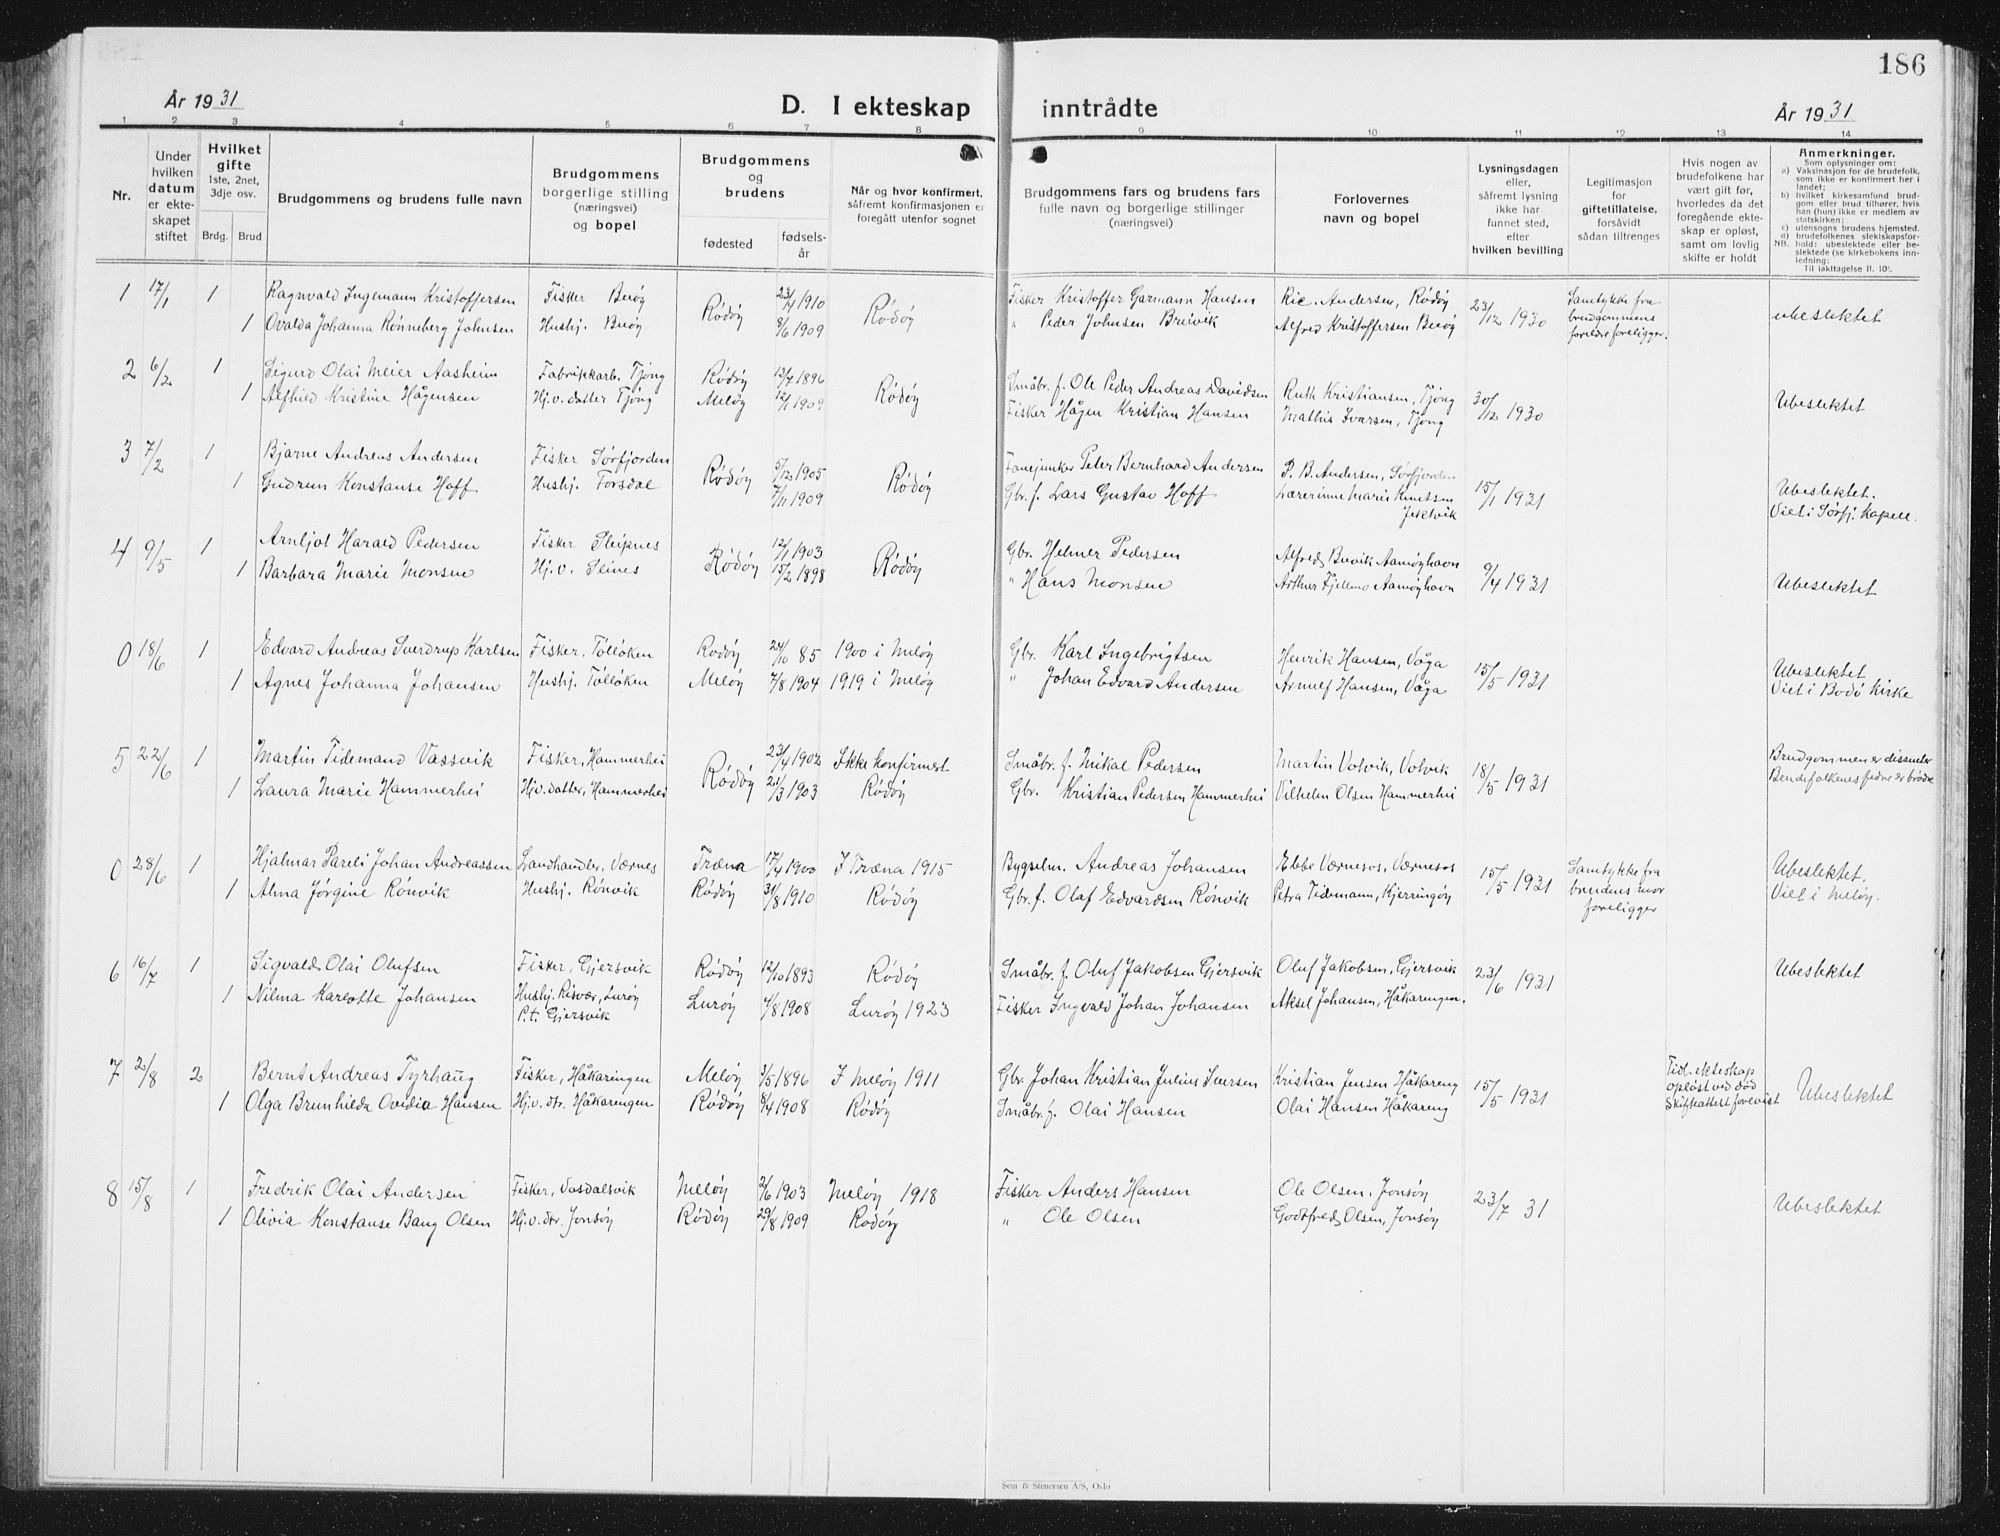 186
År 1931 D. I ekteskap inntrådte År 1931
1 2 3 4 5 6 7 8 9 10 11 12 13 14
Nr.
Under hvilken datum er ekteskapet stiftet
Hvilket gifte 1ste, 2net, 3dje osv.
Brdg. Brud
Brudgommens og brudens fulle navn
Brudgommens borgerlige stilling (næringsvei) og bopel
Brudgommens og brudens
fødested fødselsår
Når og hvor konfirmert, såfremt konfirmasjonen er foregått utenfor sognet
Brudgommens fars og brudens fars fulle navn og borgerlige stillinger (næringsvei)
Forlovernes navn og bopel
Lysningsdagen eller, såfremt lysning ikke har funnet sted, efter hvilken bevilling
Legitimasjon for giftetillatelse, forsåvidt sådan tiltrenges
Hvis nogen av brudefolkene har vært gift før, hvorledes da det foregående ekteskap er opløst, samt om lovlig skifte er holdt
Anmerkninger.
Som oplysninger om:
a) Vaksinasjon for de brudefolk, som ikke er konfirmert her i landet;
b) hvilket kirkesamfund brudgom eller brud tilhører, hvis han (hun) ikke er medlem av statskirken;
c) utensogns brudens hjemsted.
d) brudefolkenes slektskapsforhold: ubeslektede eller beslektede (se kirkebokens innledning;
NB. Til iakttagelse ff. 10).
1 17/1 1 Ragnvald Ingemann Kristoffersen Fisker Buøy Rödöy 23/4 1910 Rödöy Fisker Kristoffer Garmann Hansen Ric. Andersen, Rödöy 23/12 1930 Samtykke fra brudgommens foreldre foreligger. ubeslektet
1 Ovalda Johanna Rønneberg Johnsen Hushj. Buöy 8/6 1909 " Peder Johnsen Breivik Alfred Kristoffersen Buöy
2 6/2 1 Sigurd Olai Meier Aasheim Fabrikkarb. Tjong Rödöy 13/4 1896 Rödöy Småbr. f. Ole Peder Andreas Davidsen Ruth Kristiansen, Tjong 30/12 1930 Ubeslektet
1 Alfhild Kristine Hågensen Hj.v. datter Tjong Melöy 12/1 1909 Fisker Hågen Kristian Hansen Mathis Ivarsen, Tjong
3 7/2 1 Bjarne Andreas Andersen Fisker Sørfjorden Rödöy 5/12 1905 Rödöy Fanejunker Peter Bernhard Andersen P. B. Andersen, Sørfjorden 15/1 1931 Ubeslektet.
1 Gudrun Konstanse Hoff Hushj. Forsdal 7/11 1909 Gbr. f. Lars Gustav Hoff Lærerinne Marie Knutsen Jektvik Viet i Sørfj. Kapell.
4 9/5 1 Arnljot Harald Pedersen Fisker Sleipnes Rödöy 12/1 1903 Rödöy Gbr. Helmer Pedersen Alfred Buvik Aamöyhavn 9/4 1931 Ubeslektet
1 Barbara Marie Monsen Hj.v. Selnes 15/2 1898 " Hans Monsen Arthur Fjellmo Aamöyhavn
0 18/6 1 Edvard Andreas Sverdrup Karlsen Fisker, Tölöken Rödöy 24/10 85 1900 i Melöy Gbr. Karl Ingebrigtsen Henrik Hansen, Våga 15/5 1931 Ubeslektet
1 Agnes Johanna Johansen Hushj. Tölöken Melöy 7/8 1904 1919 i Melöy " Johan Edvard Andersen Arnulf Hansen, Våga Viet i Bodö Kirke
5 22/6 1 Martin Tidemand Vassvik Fisker, Hammerhei Rödöy 23/4 1902 Ikke konfirmert Småbr. f. Mikal Pedersen Martin Valvik, Valvik 18/5 1931 Brudgommen er dissenter
1 Laura Marie Hammerhei Hj.v. datter, Hammerhei 21/3 1903 Rödöy Gbr. Kristian Pedersen Hammerhei Vilhelm Olsen Hammerhei
0 28/6 1 Hjalmar Pareli Johan Andreassen Landhandler, Værnes Træna 17/4 1900 I Træna 1915 Bygselm. Andreas Johansen Ebbe Værnesos, Værnesos 15/5 1931 Samtykke fra brudens mor foreligger Ubeslektet.
1 Alma Jörgine Rönvik Hushj. Rönvik Rödöy 31/8 1910 Rödöy Gbr. f. Olaf Edvardsen Rönvik Petra Tidemann, Kjerringöy Viet i Melöy.
6 16/7 1 Sigvald Olai Olufsen Fisker, Gjersvik Rödöy 12/10 1893 Rödöy Småbr. f. Oluf Jakobsen Gjersvik Oluf Jakobsen, Gjersvik 23/6 1931 Ubeslektet
1 Nilma Karlotte Johansen Hushj. Risvær, Luröy P.t. Gjersvik Luröy 4/8 1908 Luröy 1923 Fisker Ingvald Johan Johansen Aksel Johansen, Håkarengen.
7 2/8 2 Bernt Andreas Tyrhaug Fisker, Håkaringen Melöy 3/5 1896 I Melöy 1911 Gbr. Johan Kristian Julius Iversen Kristian Jensen Håkareng 15/5 1931 Tidl. ekteskap opløst ved död Skifteattest forevist Ubeslektet
1 Olga Brunhilda Ovidia Hansen Hj.v. dtr. Håkarengen Rödöy 8/4 1908 Rödöy Småbr. f. Olai Hansen Olai Hansen Håkareng
8 15/8 1 Fredrik Olai Andersen Fisker, Vasdalsvik Melöy 2/6 1903 Melöy 1918 Fisker Anders Hansen Ole Olsen, Jonsöy 23/7 31 Ubeslektet
1 Olivia Konstanse Bang Olsen Hj.v. dtr. Jonsöy Rödöy 29/8 1909 Rödöy " Ole Olsen Godtfred Olsen, Jonsöy
Sem & Stenersen A/S, Oslo